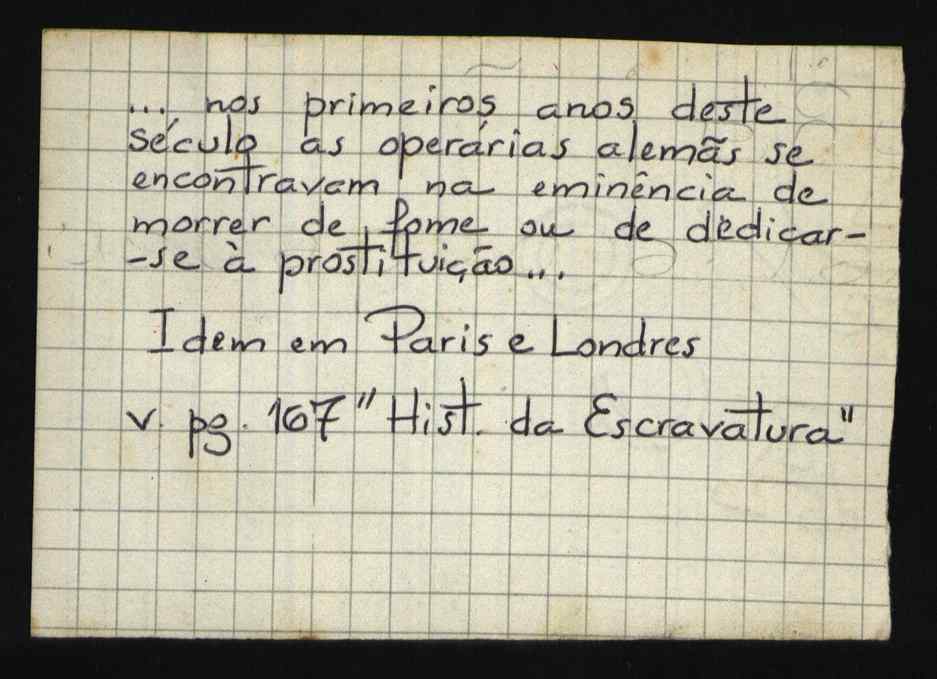 ... nos primeiros anos deste
século as operárias alemãs se
encontravam na eminência de
morrer de fome ou de dedicar-
-se à prostituição...
Idem em Paris e Londres
v. pg. 167 "Hist. da Escravatura"